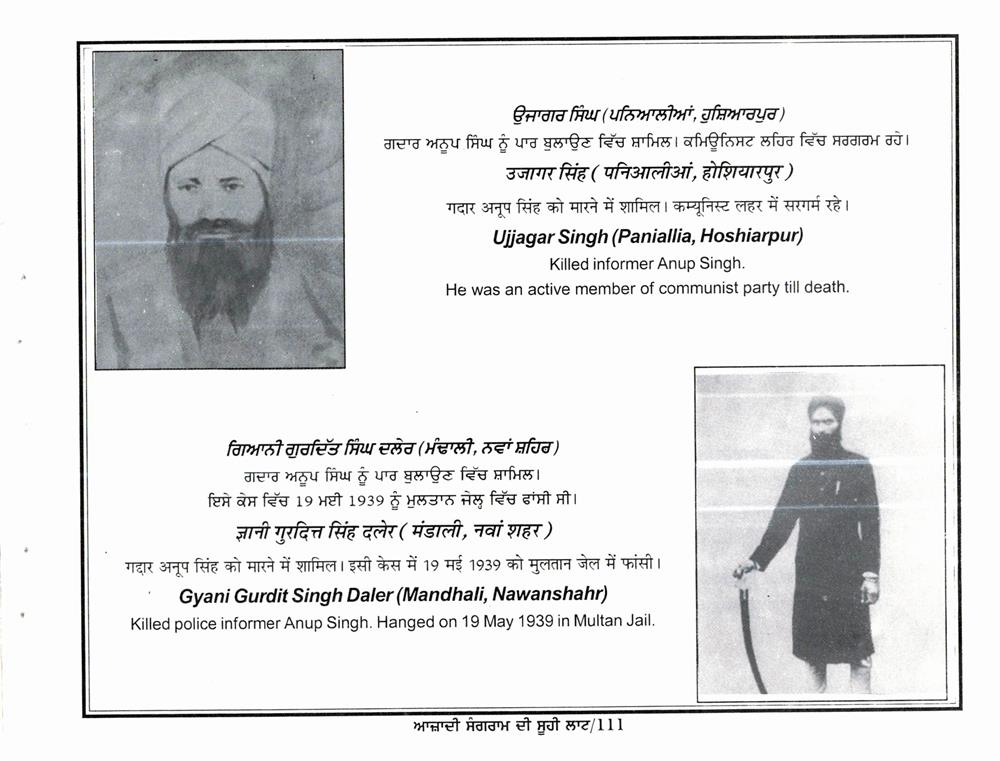 ਉਜਾਗਰ ਸਿੰਘ (ਪਨਿਆਲੀਆਂ, ਹੁਸ਼ਿਆਰਪੁਰ)
ਗਦਾਰ ਅਨੂਪ ਸਿੰਘ ਨੂੰ ਪਾਰ ਬੁਲਾਉਣ ਵਿੱਚ ਸ਼ਾਮਿਲ। ਕਮਿਊਨਿਸਟ ਲਹਿਰ ਵਿੱਚ ਸਰਗਰਮ ਰਹੇ।
उजागर सिंह ( पनिआलीआं, होशियारपुर )
गदार अनूप सिंह को मारने में शामिल। कम्यूनिस्ट लहर में सरगर्म रहे।
Ujjagar Singh (Paniallia, Hoshiarpur)
Killed informer Anup Singh.
He was an active member of communist party till death.
ਗਿਆਨੀ ਗੁਰਦਿੱਤ ਸਿੰਘ ਦਲੇਰ (ਮੰਢਾਲੀ, ਨਵਾਂ ਸ਼ਹਿਰ)
ਗਦਾਰ ਅਨੂਪ ਸਿੰਘ ਨੂੰ ਪਾਰ ਬੁਲਾਉਣ ਵਿੱਚ ਸ਼ਾਮਿਲ।
ਇਸੇ ਕੇਸ ਵਿੱਚ 19 ਮਈ 1939 ਨੂੰ ਮੁਲਤਾਨ ਜੇਲ੍ਹ ਵਿੱਚ ਫਾਂਸੀ ਸੀ।
ज्ञानी गुरदित्त सिंह दलेर ( मंडाली, नवां शहर )
गद्दार अनूप सिंह को मारने में शामिल। इसी केस में 19 मई 1939 को मुलतान जेल में फांसी।
Gyani Gurdit Singh Daler (Mandhali, Nawanshahr)
Killed police informer Anup Singh. Hanged on 19 May 1939 in Multan Jail.
ਆਜ਼ਾਦੀ ਸੰਗਰਾਮ ਦੀ ਸੂਹੀ ਲਾਟ/111